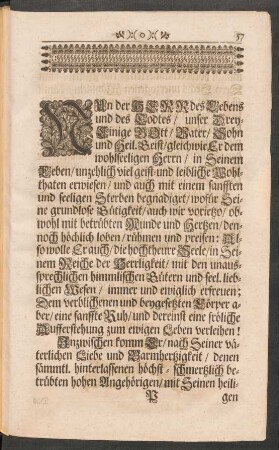 57
NUn der HERR des Lebens
und des Todtes / unser Drey-
Einige GOtt / Vater / Sohn
und Heil. Geist / gleichwie Er dem
wohlseeligen Herrn / in Seinem
Leben / unzehlich viel geist- und leibliche Wohl-
thaten erwiesen / und auch mit einem sanfften
und seeligen Sterben begnadiget / wofür Sei-
ne grundlose Gütigkeit / auch wir vorietzo / ob-
wohl mit betrübten Munde und Hertzen / den-
noch höchlich loben / rühmen und preisen: Al-
so wolle Er auch / die hochtheure Seele / in Sei-
nem Reiche der Herrligkeit / mit den unaus-
sprechlichen himmlischen Gütern und seel. lieb-
lichen Wesen / immer und ewiglich erfreuen;
Dem verblichenen und beygesetzten Cörper a-
ber / eine sanffte Ruh / und dereinst eine fröliche
Aufferstehung zum ewigen Leben verleihen!
Inzwischen komm Er / nach Seiner vä-
terlichen Liebe und Barmhertzigkeit / denen
sammtl. hinterlassenen höchst-schmertzlich be-
trübten hohen Angehörigen / mit Seinen heili-
P gen